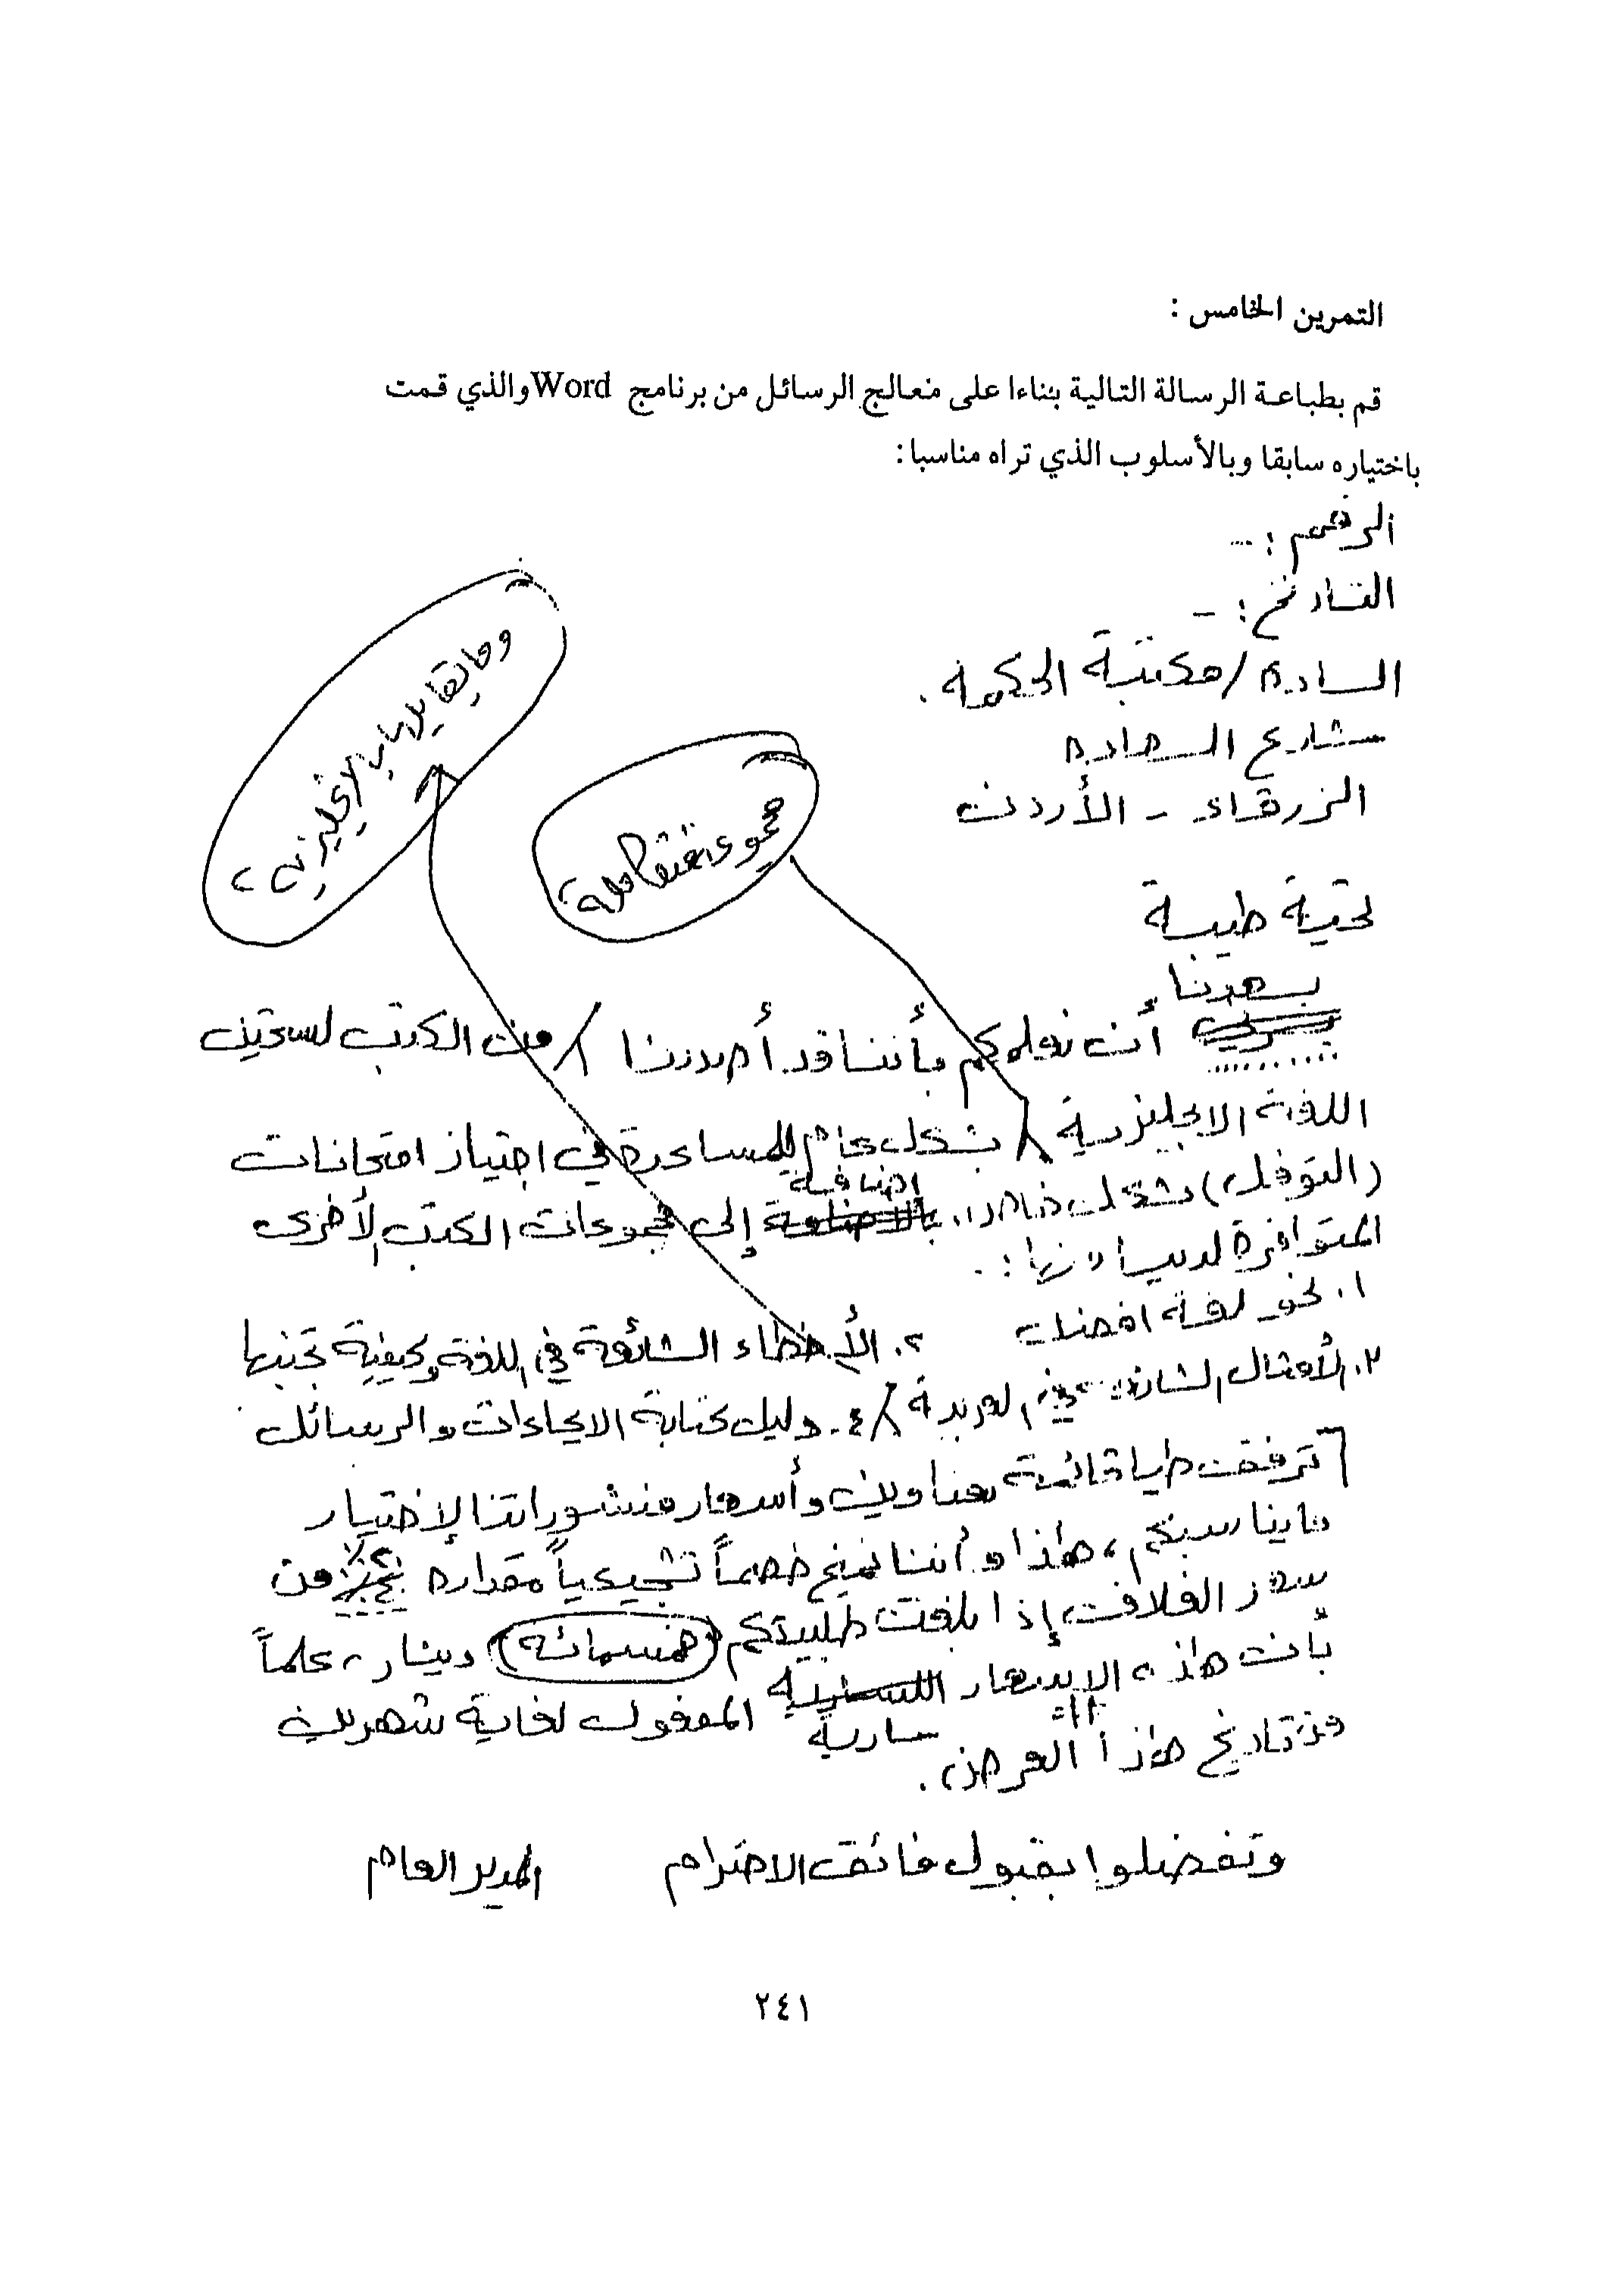 التمرين الخامس :
قم بطباعة الرسالة التالية بناءا على معالج الرسائل من برنامج Word والذي قمت
باختياره سابقا وبالأسلوب الذي تراه مناسبا:
الرقم : ...
التاريخ : -
السادة / مكتبة الحكمة .
شارع السعادة
الزرقاء - الأردن
وما يقابلها بالإنجليزية
مجموعة متكاملة
تحية طيبة
يسعدنا
يسرني أن نعلمكم بأننا قد أصدرنا / من الكتب لتحسين
اللغة الانجليزية / بشكل عام للمساعدة في اجتياز امتحانات
(التوفل) بشكل خاص.
إضافة
بالاضافة إلى مجموعات الكتب الأخرى
المتوافرة لدينا ومنها : .
١. نحو لغة افضل
٢. الأخطاء الشائعة في اللغة وكيفية تجنبها
٣. الأمثال الشائعة في العربية / ٤. دليل كتابة الايحاءات والرسائل
[ نرفق طيا قائمة بعناوين وأسعار منشوراتنا لإختيار
ما يناسبكم، هذا وأننا نمنح خصماً تشجيعياً مقداره من
سعر الغلاف إذا بلغت طلبيتكم (خمسمائة) دينار، علماً
بأن هذه الاسعار المفعول لغاية شهرين
سارية
من تاريخ هذا العرض .
وتفضلوا بقبول فائق الاحترام
المدير العام
٢٤١